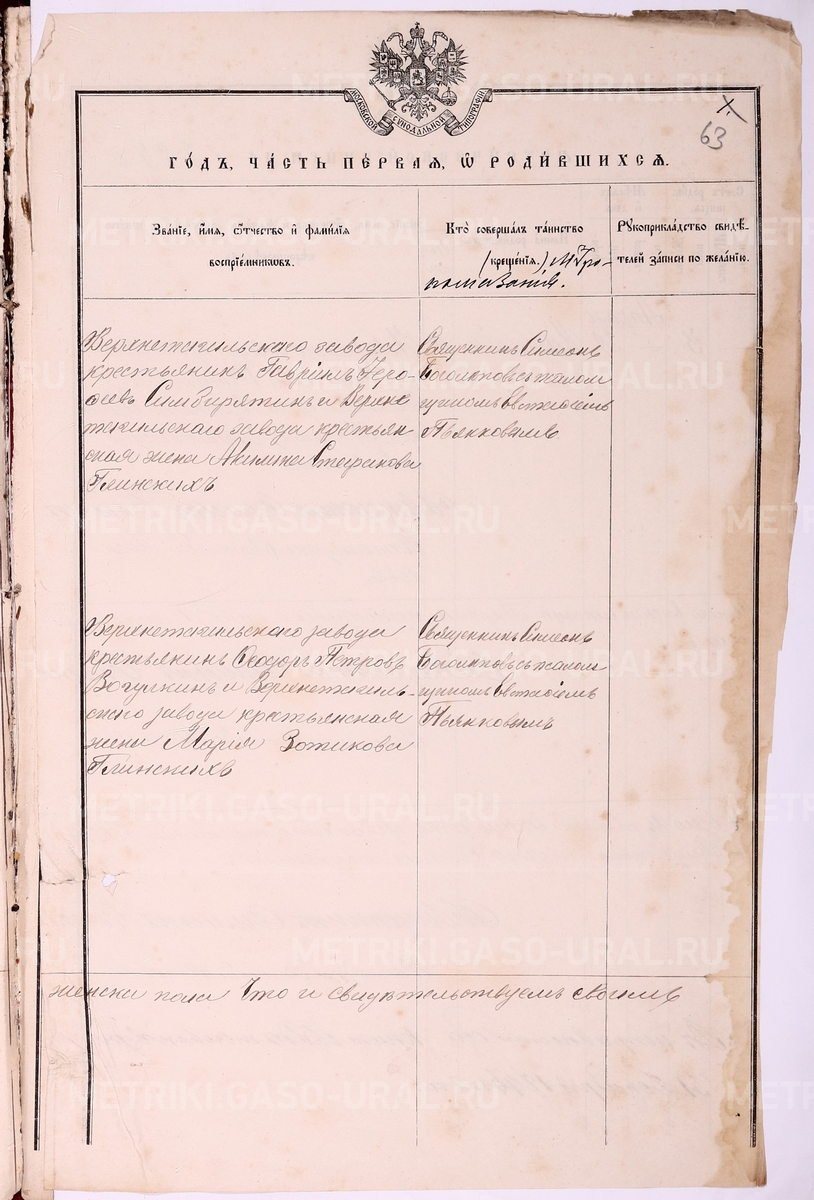 МОСКОВСКОЙ СѴНОДАЛЬНОЙ ТИПОГРАФІИ
63
ГО́ДЪ, ЧА́СТЬ ПЕ́РВАЯ, Ѡ҆ РОДИ́ВШИХСЯ.
Зва́нїе, и҆́мя, ѻ҆́тчество и҆ фами́лїя
воспрїе́мникѡвъ.
Кто̀ соверша́лъ та́инство
(креще́нїя.) Мѵро-
помазанія.
Рꙋкоприкла́дство свидѣ́-
телей за́писи по жела́нїю.
Верхнетагильскаго завода
крестьянинъ Гавріилъ Іеро-
ѳеевъ Симбирятинъ и Верхне
тагильскаго завода крестьян-
ская жена Акилина Стефанова
Глинскихъ
Священникъ Симеонъ
Боголюповъ съ псалом
щикомъ Евстафіемъ
Пьянковымъ
Верхнетагильскаго завода
крестьянинъ Ѳеодоръ Петровъ
Вогулкинъ и Верхнетагиль-
скаго завода крестьянская
жена Марія Зотикова
Глинскихъ
Священникъ Симеонъ
Боголюповъ съ псалом
щикомъ Евстафіемъ
Пьянковымъ
женска пола Что и свидѣтельствуемъ своимъ
METRIKI.GASO-URAL.RU